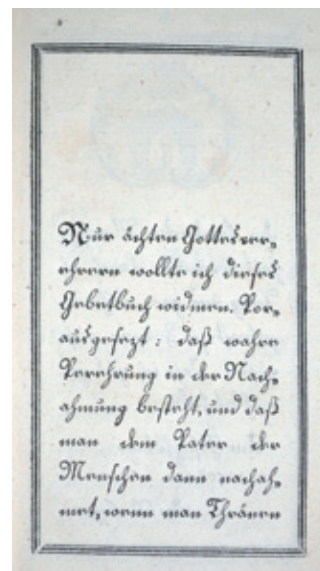 Nur ächten Gottesver-
ehrern wollte ich dieses
Gebetbuch widmen. Vor-
ausgesezt: daß wahre
Verehrung in der Nach-
ahmung besteht, und daß
man dem Vater der
Menschen dann nachah-
met, wenn man Thränen